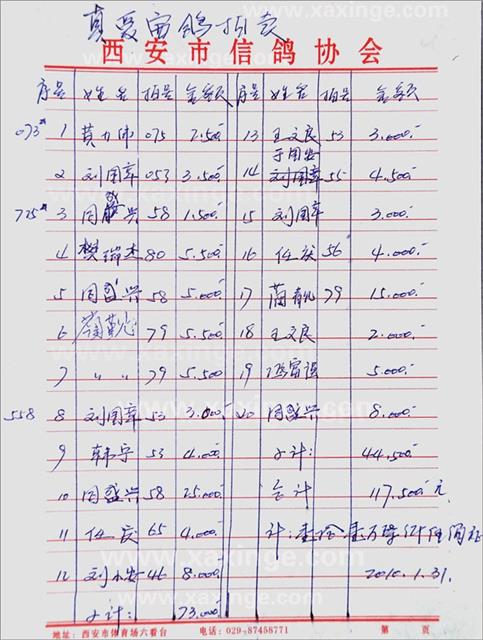 www.xaxinge.com
夏宙鸽拍卖
西安市信鸽协会
序号 姓名 拍号 金额 序号 姓名 拍号 金额
073# 1 黄力伟 075 2.500 13 王文良 53 3.000
于国安
2 刘国荣 053 3.500 14 刘国荣 55 4.500
725# 3 同盛兴 58 1.500 15 刘国荣 3.000
4 樊瑞杰 80 5.500 16 任庆 56 4.000
5 同盛兴 58 5.000 17 79 15.000
6 79 5.500 18 王文良 2.000
7 〃 〃 79 5.500 19 冯富强 5.000
558 8 刘国荣 53 3.000 20 同盛兴 8.000
9 韩宇 53 4.000 小计: 44.500
10 同盛兴 58 25.000 合计 117.500元
11 任庆 65 4.000 计:壹拾壹万
12 刘小安 46 8.000 2010.1.31.
小计: 73.000
地址: 西安市体育场六看台 电话: 029-87458771 第 页